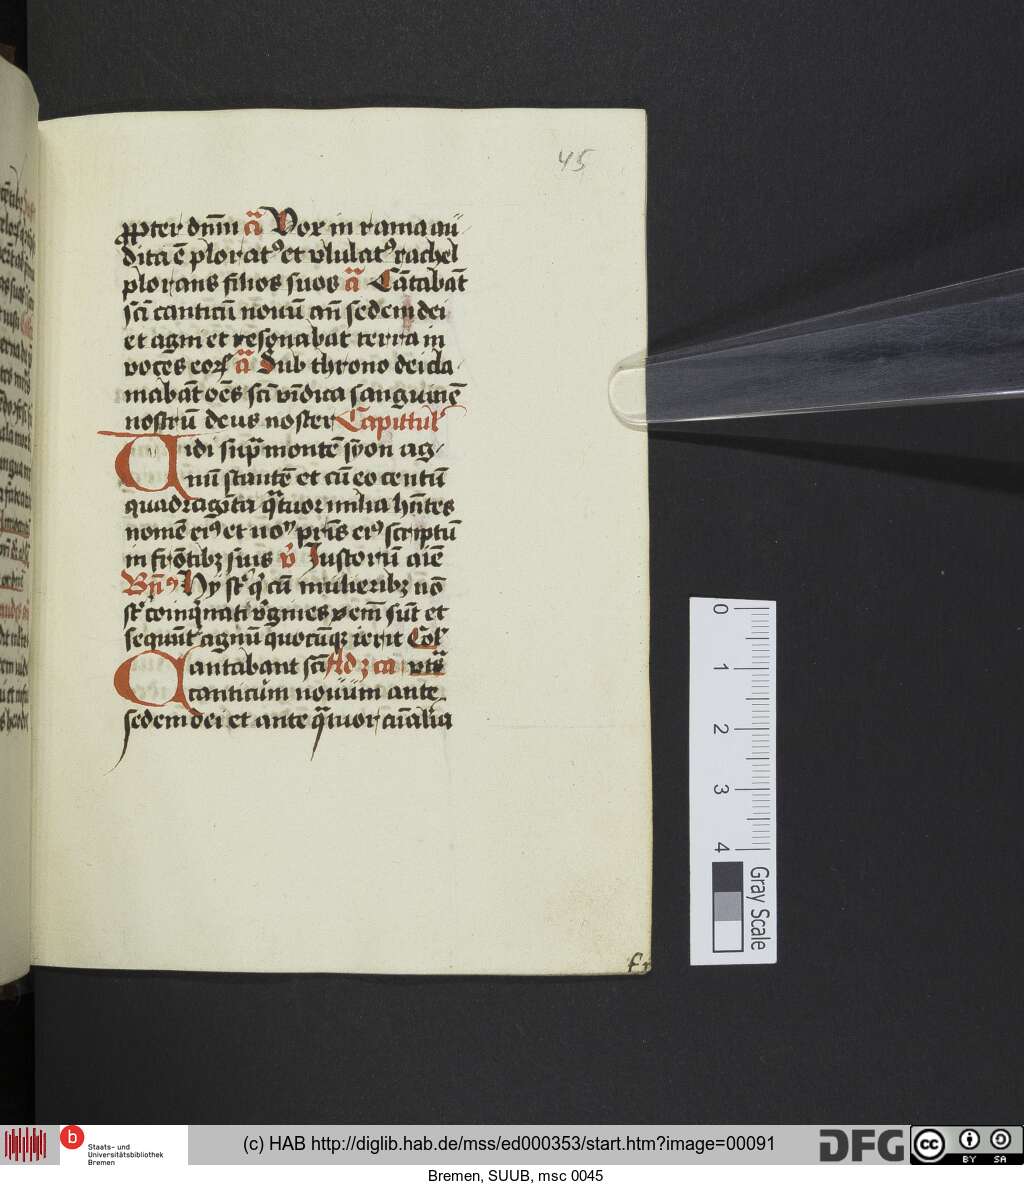 45
ꝓpter dnm̄ añ Vox in rama au
dita ē plorat⁹ et vlulat⁹ rachel
plorans filios suos añ Cātabāt
scī canticū nouū añ sedem dei
et agni et resonabat terra in
voces eorꝝ añ Sub throno dei cla
mabāt oēs scī vīdica sanguinē
nostrū deus noster Capittul
Vidi supͣ montē syon ag
nū stantē et cū eo centū
quadragīta qͣtuor milia hn̄tes
nomē ei⁹ et nomē pr̄is ei⁹ scriptū
in frōtibꝫ suis v̄ Iustorū aīe
Bn̄⁹ Hy st̄ qͥ cū mulieribꝫ nō
st̄ coinqͥnati v̓gines em̄ sūt et
sequūt̄ agnū quocūqꝫ ierit Col
Cantabant scī Ad ꝫ cā vt sͣ
canticum nouum ante
sedem dei et ante qͣtuor aīalia
fr
0
1
2
3
4
Gray Scale
b
Staats- und
Universitätsbibliothek
Bremen
(c) HAB http://diglib.hab.de/mss/ed000353/start.htm?image=00091
DFG
cc
BY SA
Bremen, SUUB, msc 0045